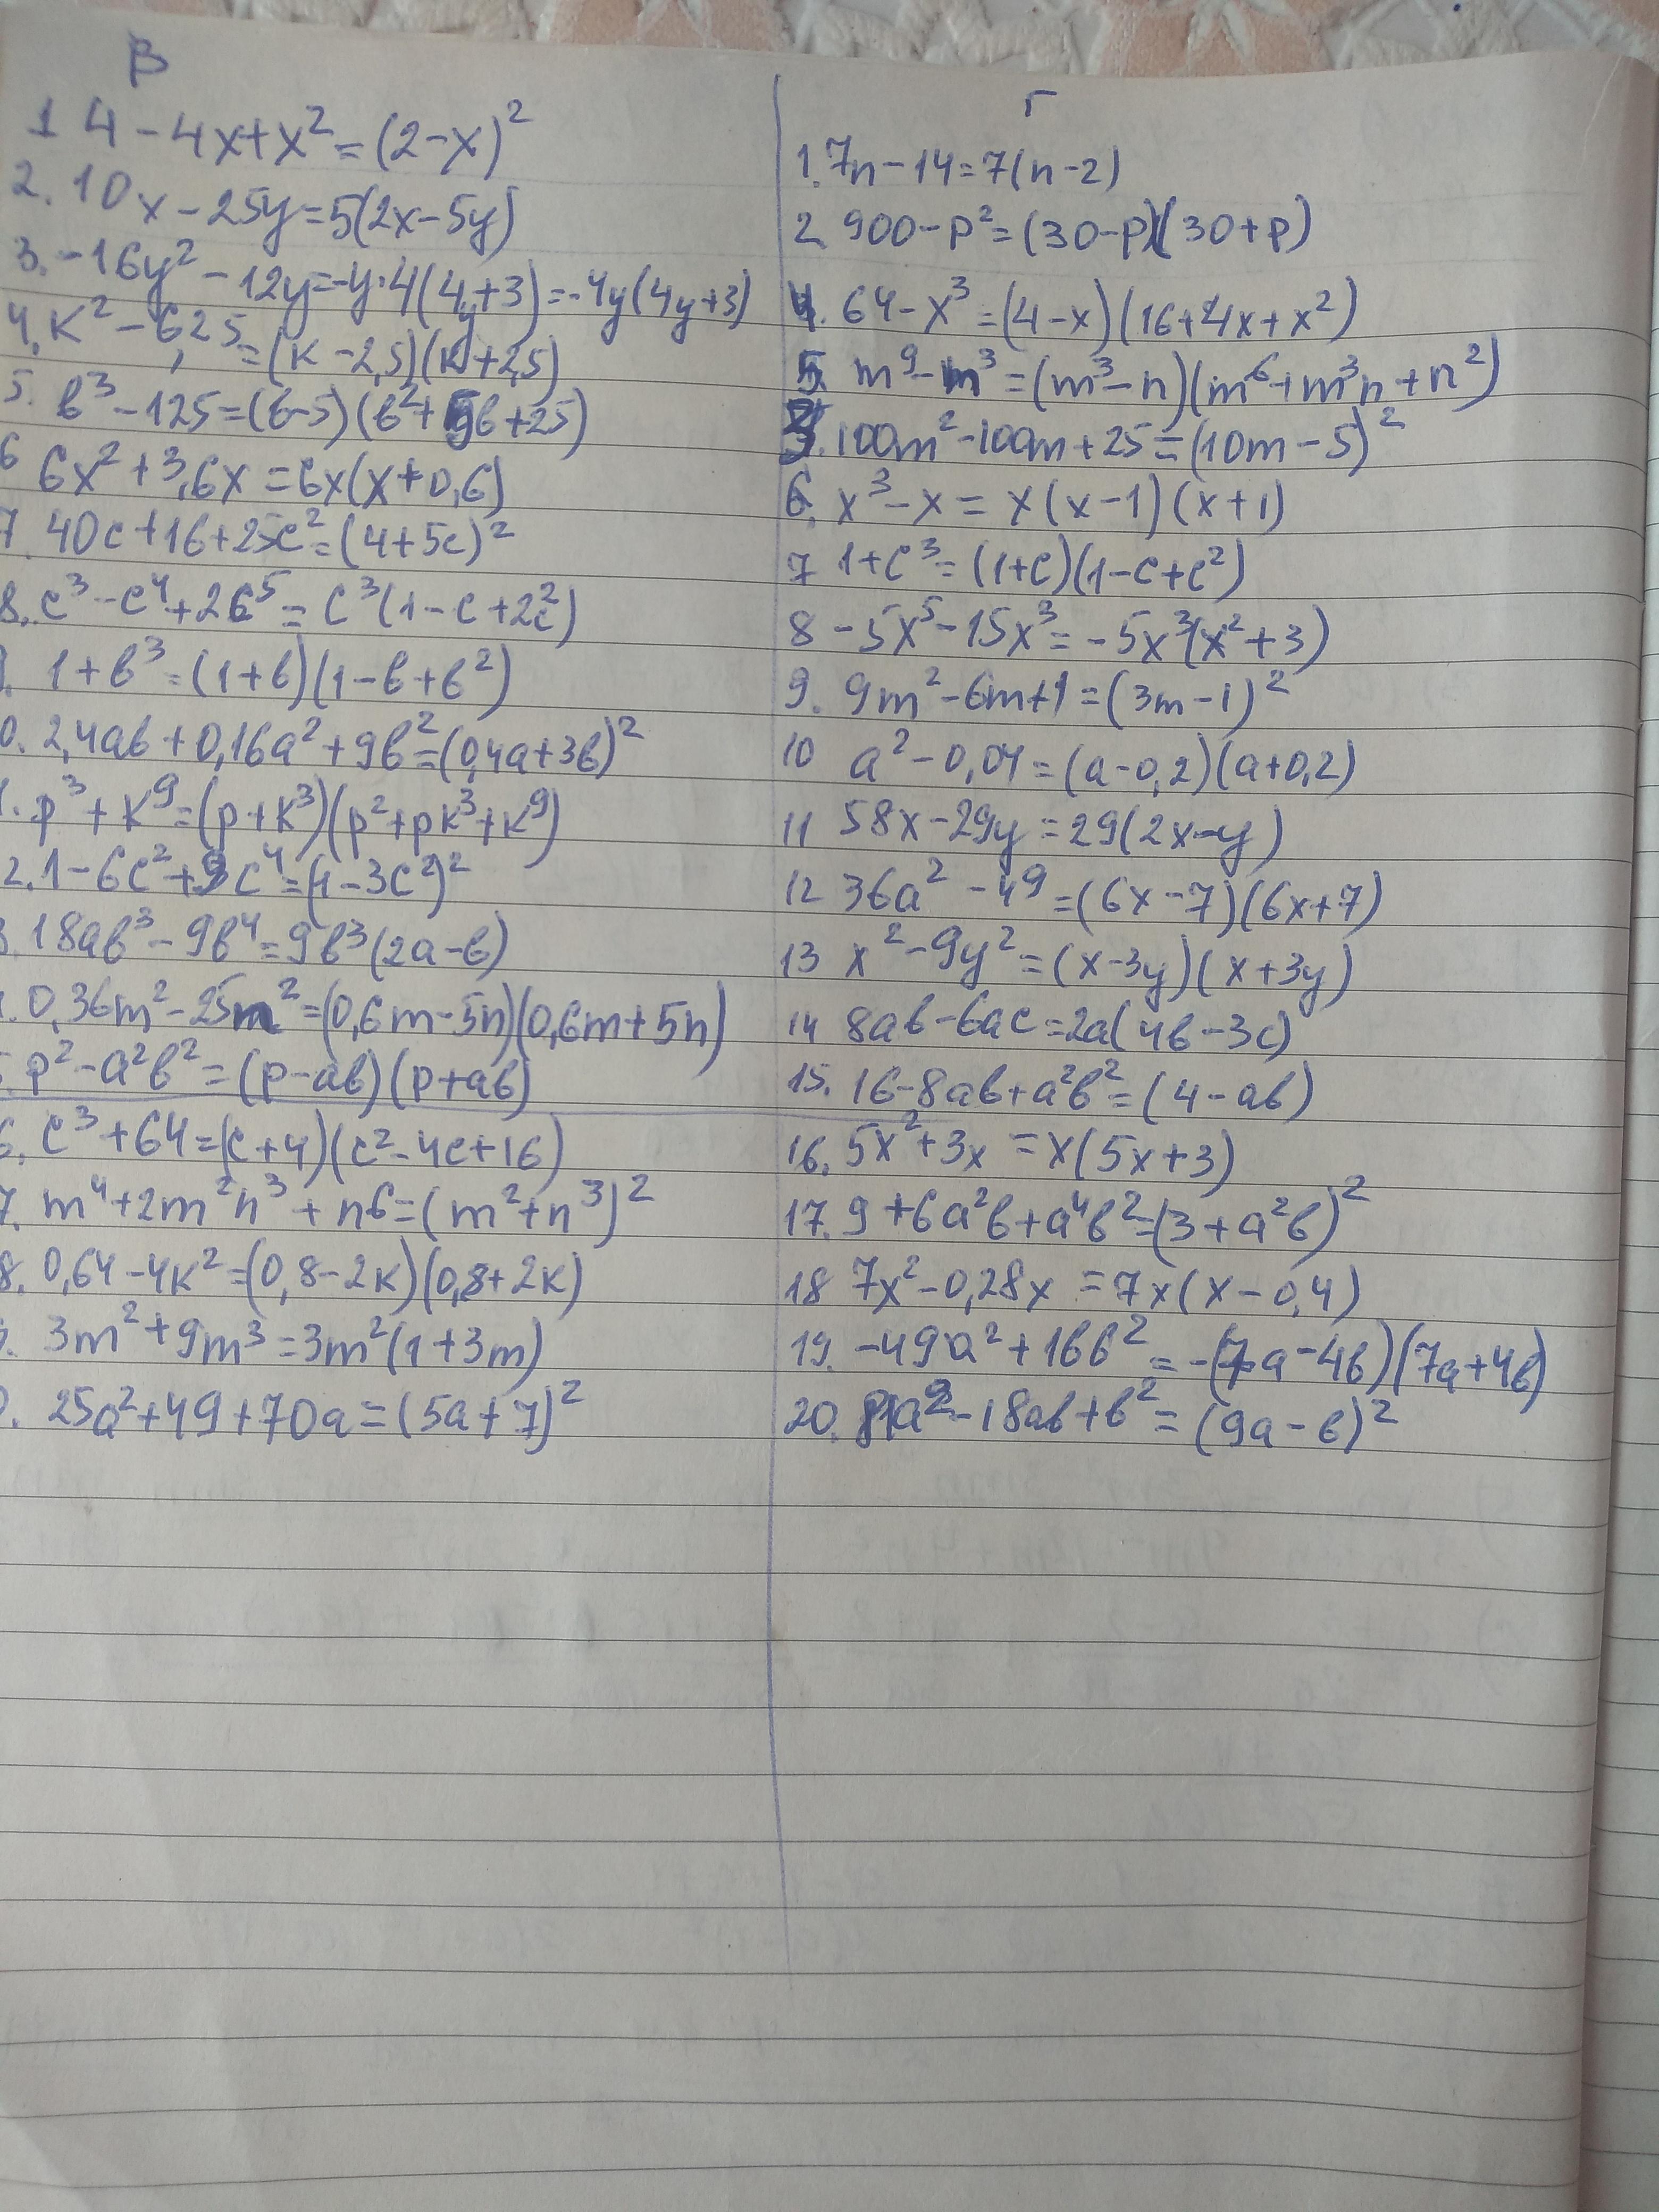 В
1 4 - 4x + x² = (2-x)²
2. 10x - 25y = 5(2x - 5y)
3. -16y² - 12y = -y·4(4y+3) = -4y(4y+3)
4. к² - 6,25 = (к - 2,5)(к + 2,5)
5. в³ - 125 = (в-5)(в² + 5в + 25)
6 6x² + 3,6x = 6x(x + 0,6)
7. 40c + 16 + 25c² = (4 + 5c)²
8. c³ - c⁴ + 2c⁵ = c³(1 - c + 2c²)
. 1 + в³ = (1 + в)(1 - в + в²)
0. 2,4ав + 0,16а² + 9в² = (0,4а + 3в)²
. p³ + к⁹ = (p + к³)(p² + pк³ + к⁹)
2. 1 - 6c² + 9c⁴ = (1 - 3c²)²
3. 18ав³ - 9в⁴ = 9в³(2а - в)
. 0,36m² - 25n² = (0,6m - 5n)(0,6m + 5n)
. p² - а²в² = (p - ав)(p + ав)
6. c³ + 64 = (c + 4)(c² - 4c + 16)
7. m⁴ + 2m²n³ + n6 = (m² + n³)²
8. 0,64 - 4к² = (0,8 - 2к)(0,8 + 2к)
. 3m² + 9m³ = 3m²(1 + 3m)
. 25а² + 49 + 70а = (5а + 7)²
Г
1. 7n - 14 = 7(n - 2)
2. 900 - p² = (30 - p)(30 + p)
4. 64 - x³ = (4 - x)(16 + 4x + x²)
5. m⁹ - n³ = (m³ - n)(m⁶ + m³n + n²)
3. 100m² - 100m + 25 = (10m - 5)²
6. x³ - x = x(x - 1)(x + 1)
7 1 + c³ = (1 + c)(1 - c + c²)
8 -5x⁵ - 15x³ = -5x³(x² + 3)
9. 9m² - 6m + 1 = (3m - 1)²
10 а² - 0,04 = (а - 0,2)(а + 0,2)
11 58x - 29y = 29(2x - y)
12 36а² - 49 = (6x - 7)(6x + 7)
13 x² - 9y² = (x - 3y)(x + 3y)
14 8ав - 6ас = 2а(4в - 3с)
15. 16 - 8ав + а²в² = (4 - ав)
16. 5x² + 3x = x(5x + 3)
17. 9 + 6а²в + а⁴в² = (3 + а²в)²
18 7x² - 0,28x = 7x(x - 0,4)
19. -49а² + 16в² = -(7а - 4в)(7а + 4в)
20. 81а² - 18ав + в² = (9а - в)²